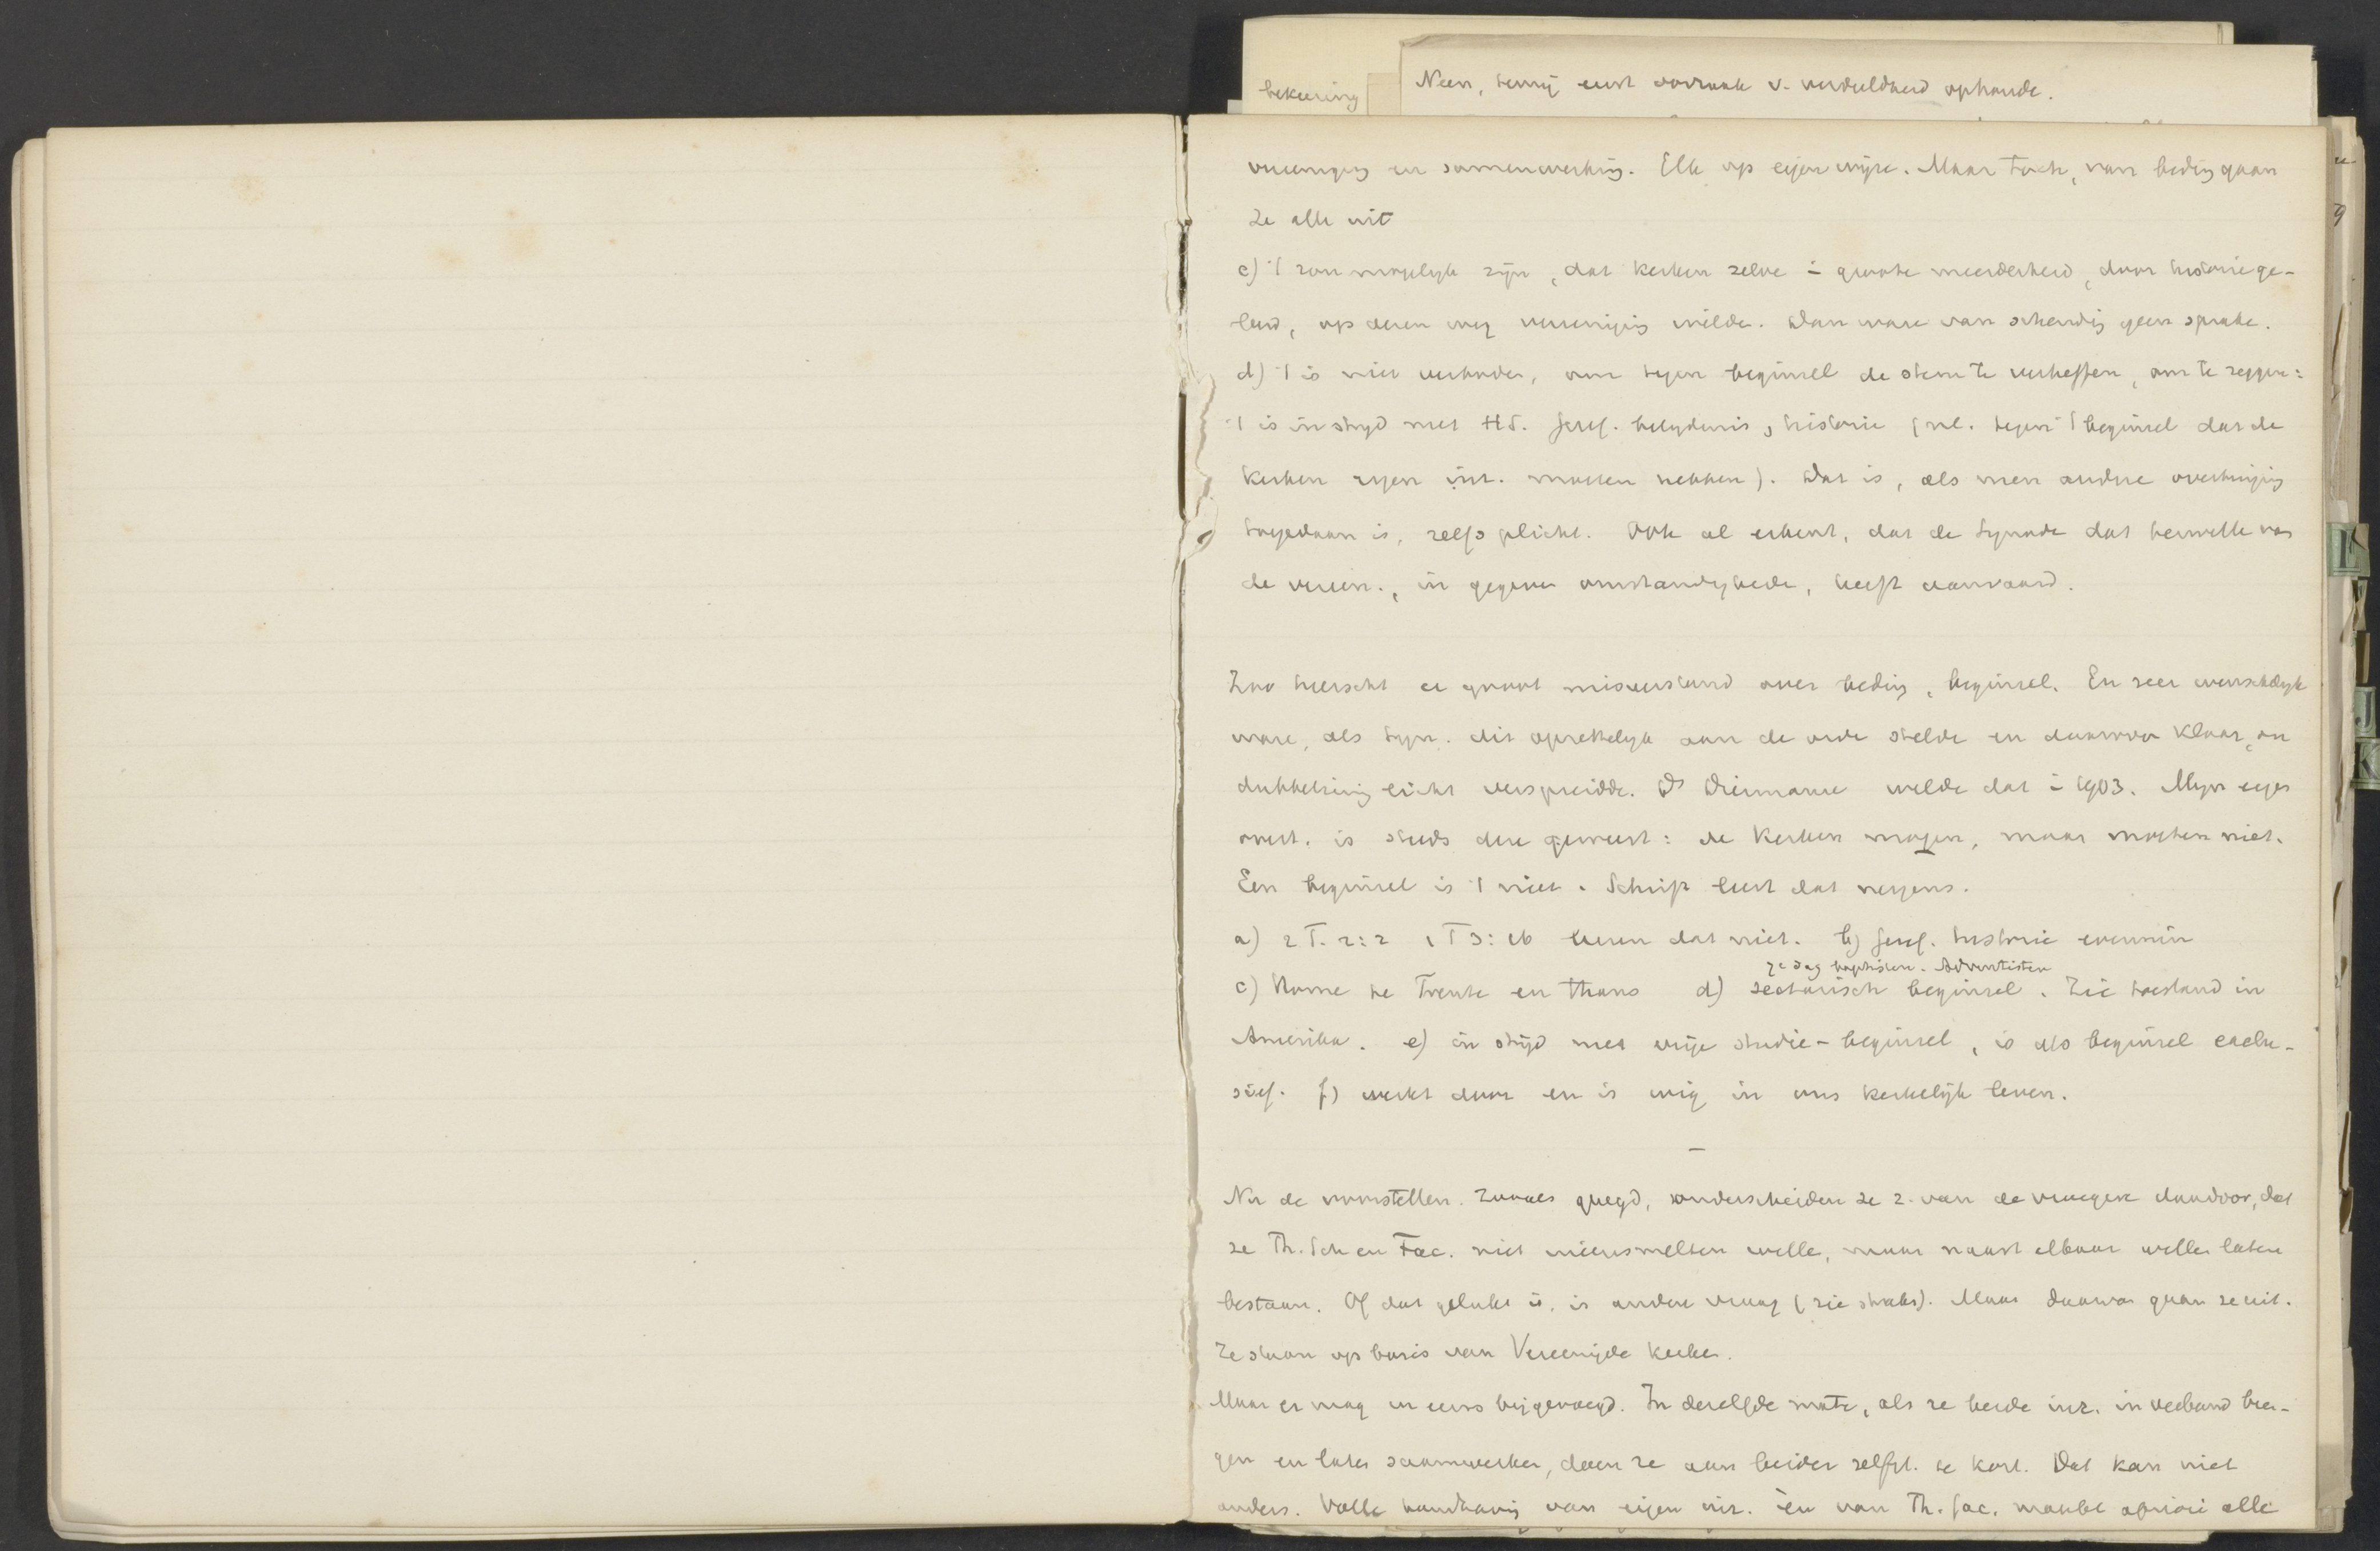 bekeering
Neen, tenzij eerst oorzaak v. verdeeldheid ophoude.
vereeniging en samenwerking. Elk op eigen wijze. Maar toch, van beding gaan
ze alle uit
c) 't zou mogelijk zijn, dat kerken zelve i groote meerderheid, door historie ge-
leerd, op dezen weg vereeniging wilde. Dan ware van schending geen sprake.
d) 't is niet verboden, om tegen beginsel de stem te verheffen, om te zeggen:
't is in stryd met HS. Geref. belydenis, historie (nl. tegen 't beginsel dat de
kerken eigen inr. moeten hebben). Dat is, als men andere overtuiging
toegedaan is, zelfs plicht. Ook al erkent, dat de Synode dat terwille van
de vereen., in gegeven omstandigheden, heeft aanvaard.
Zoo heerscht er groot misverstand over beding, beginsel. En zeer wenschelyk
ware, als Syn. dit opzettelyk aan de orde stelde en daarover klaar, on
dubbelzinnig licht verspreidde. Ds Diermanse wilde dat i 1903. Myn eigen
overt. is steeds deze geweest: de kerken mogen, maar moeten niet.
Een beginsel is 't niet. Schrift leert dat nergens.
a) 2 T. 2:2 1 T 3:16 leeren dat niet. b) Geref. historie evenmin
7e dag baptisten. Adventisten
c) Rome te Trente en thans d) sectarisch beginsel. Zie toestand in
Amerika. e) in strijd met vrije studie-beginsel, is als beginsel exclu-
sief. f) werkt door en is wig in ons kerkelijk leven.
–
Nu de voorstellen. Zooals gezegd, onderscheiden ze z. van de vroegere daardoor, dat
ze Th. Sch en Fac. niet ineensmelten wille, maar naast elkaar willen laten
bestaan. Of dat gelukt is, is andere vraag (zie straks). Maar daarvan gaan ze uit.
Ze staan op basis van Vereenigde kerken.
Maar er mag in eens bijgevoegd. In dezelfde mate, als ze beide inr. in verband bren-
gen en laten saamwerken, doen ze aan beider zelfst. te kort. Dat kan niet
anders. Volle handhaving van eigen inr. èn van Th. fac. maakt apriori alle